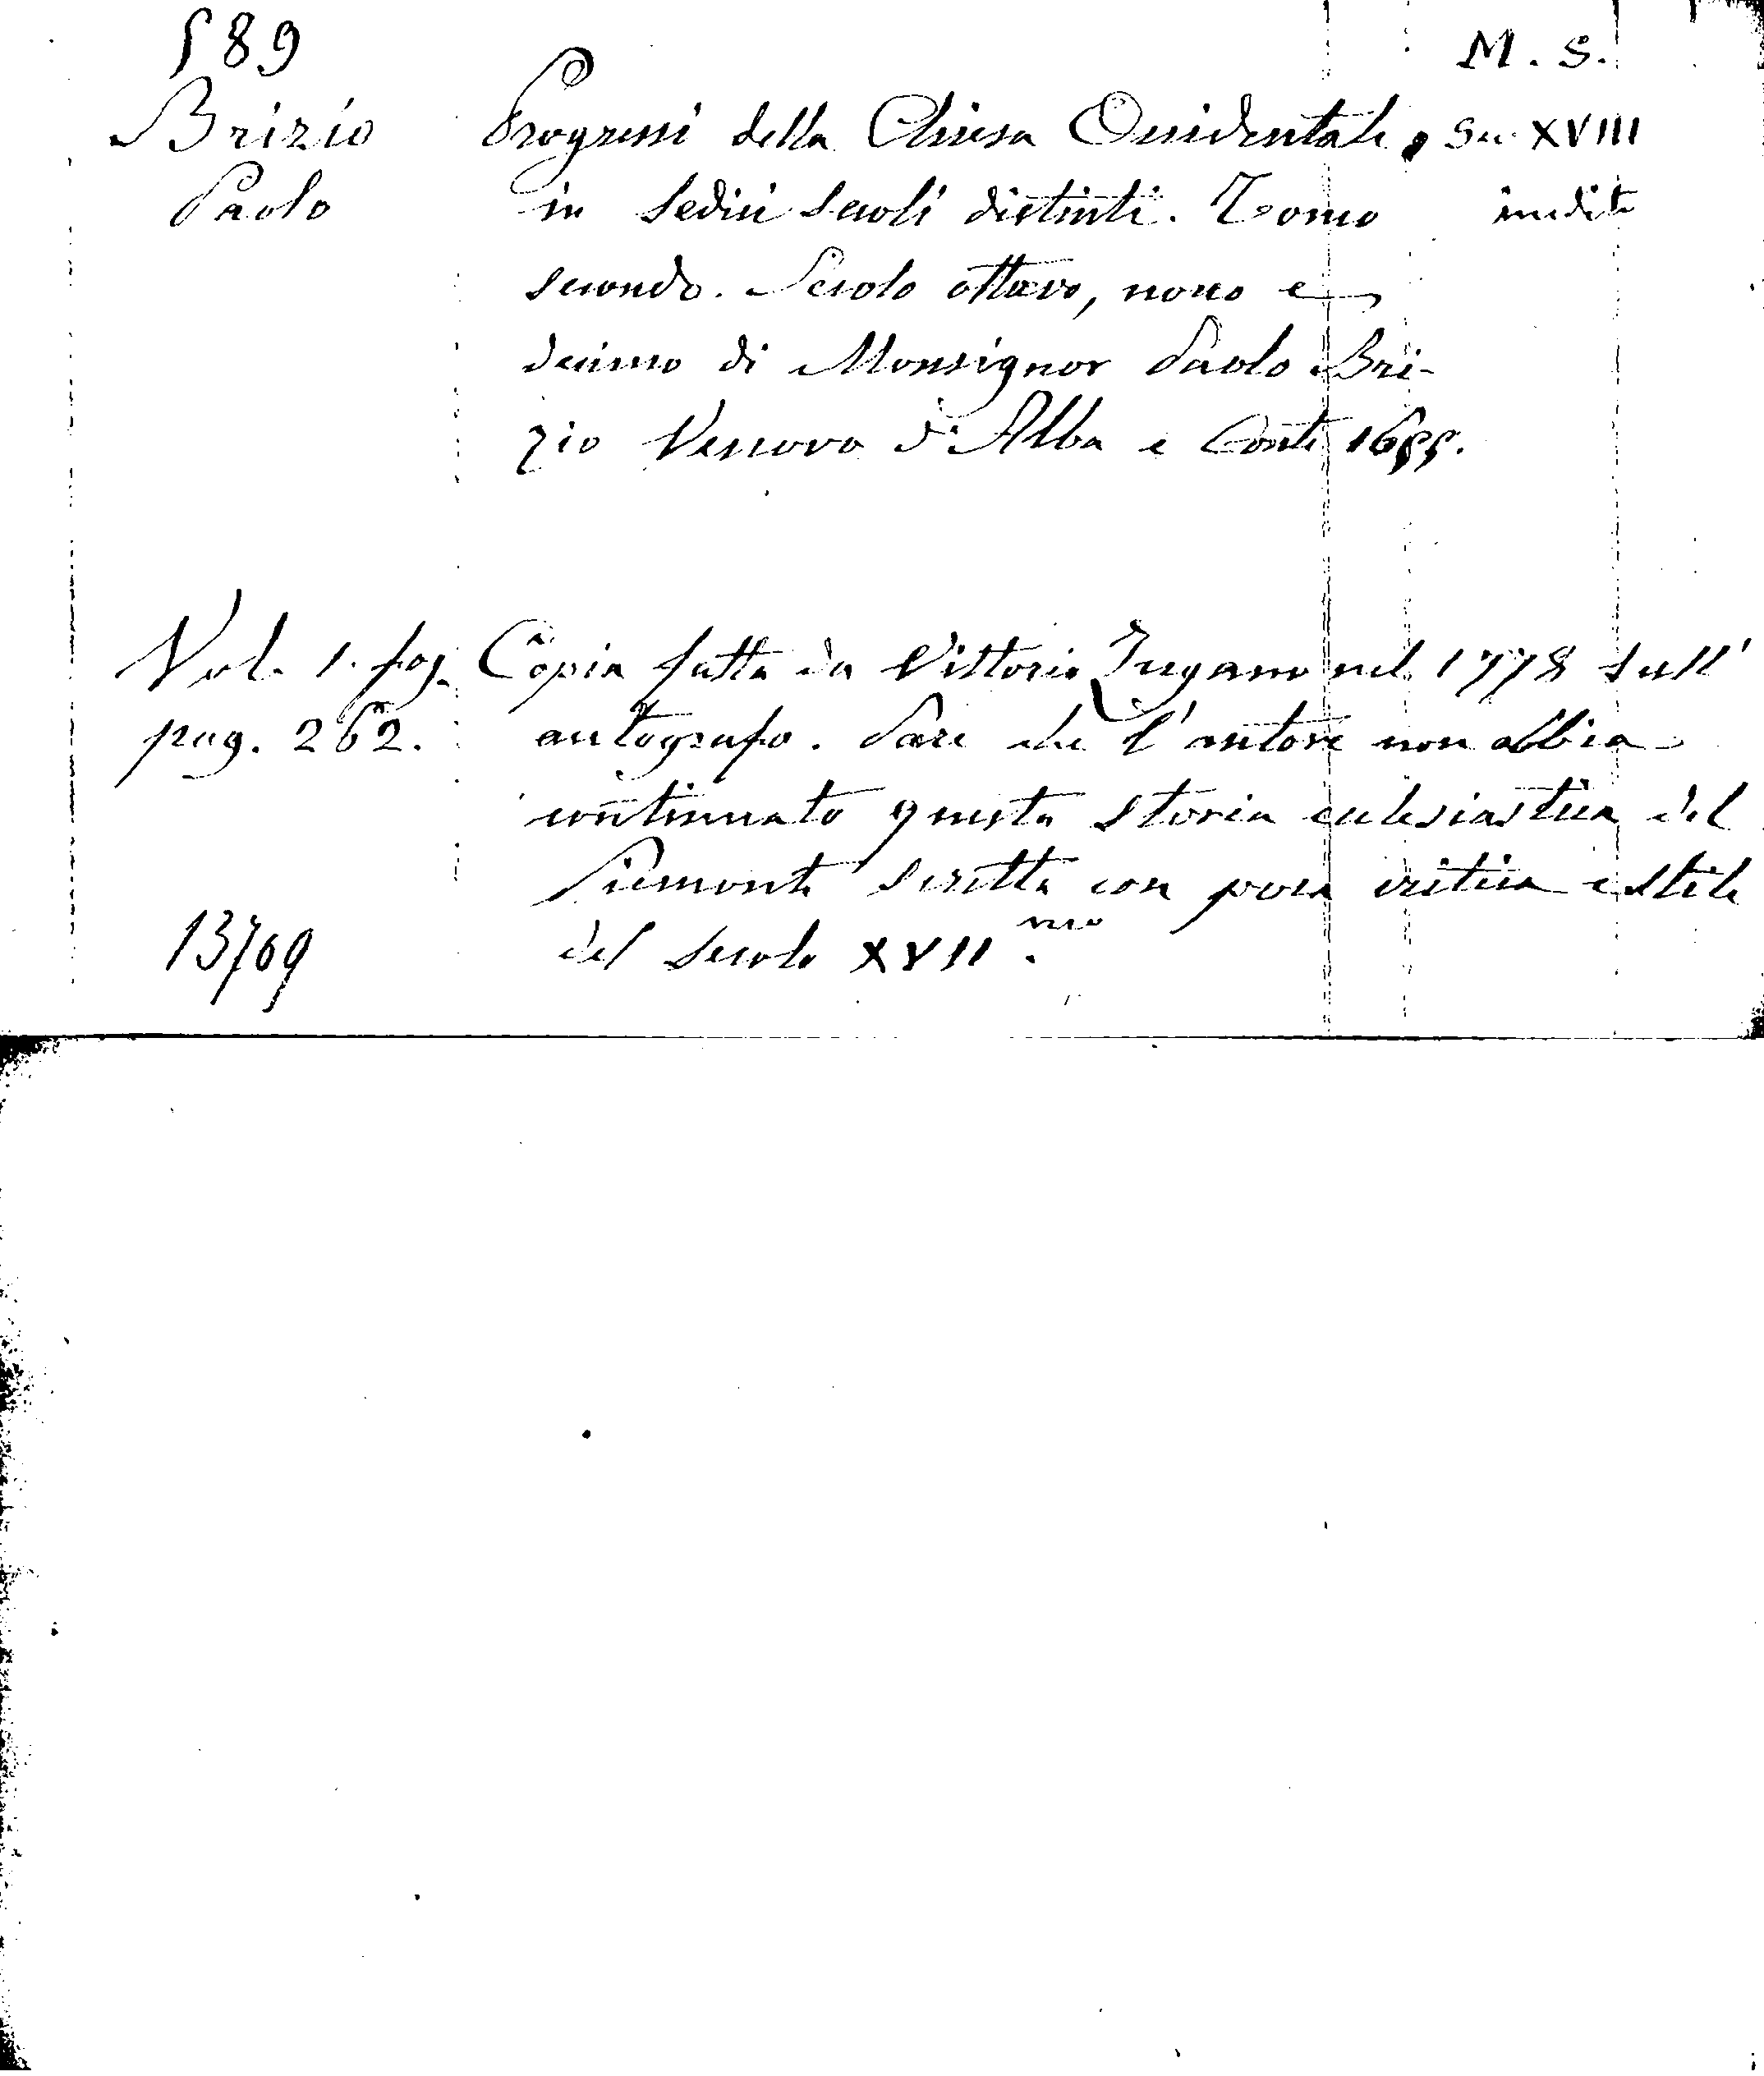 589
M. S.
Brizio
Paolo
Progressi della Chiesa Occidentale
Sec. XVIII
in sedici secoli distinti. Tomo
inedito
secondo. Secolo ottavo, nono e
decimo di Monsignor Paolo Bri-
zio Vescovo d'Alba e Conte 1655.
Vol. 1. fog.
pag. 262.
Copia fatta da Vittorio nel 1778 sull'
autografo. Pare che l'autore non abbia
continuato questa storia ecclesiastica del
Piemonte scritta con poca critica e stile
del secolo XVII mo.
13769